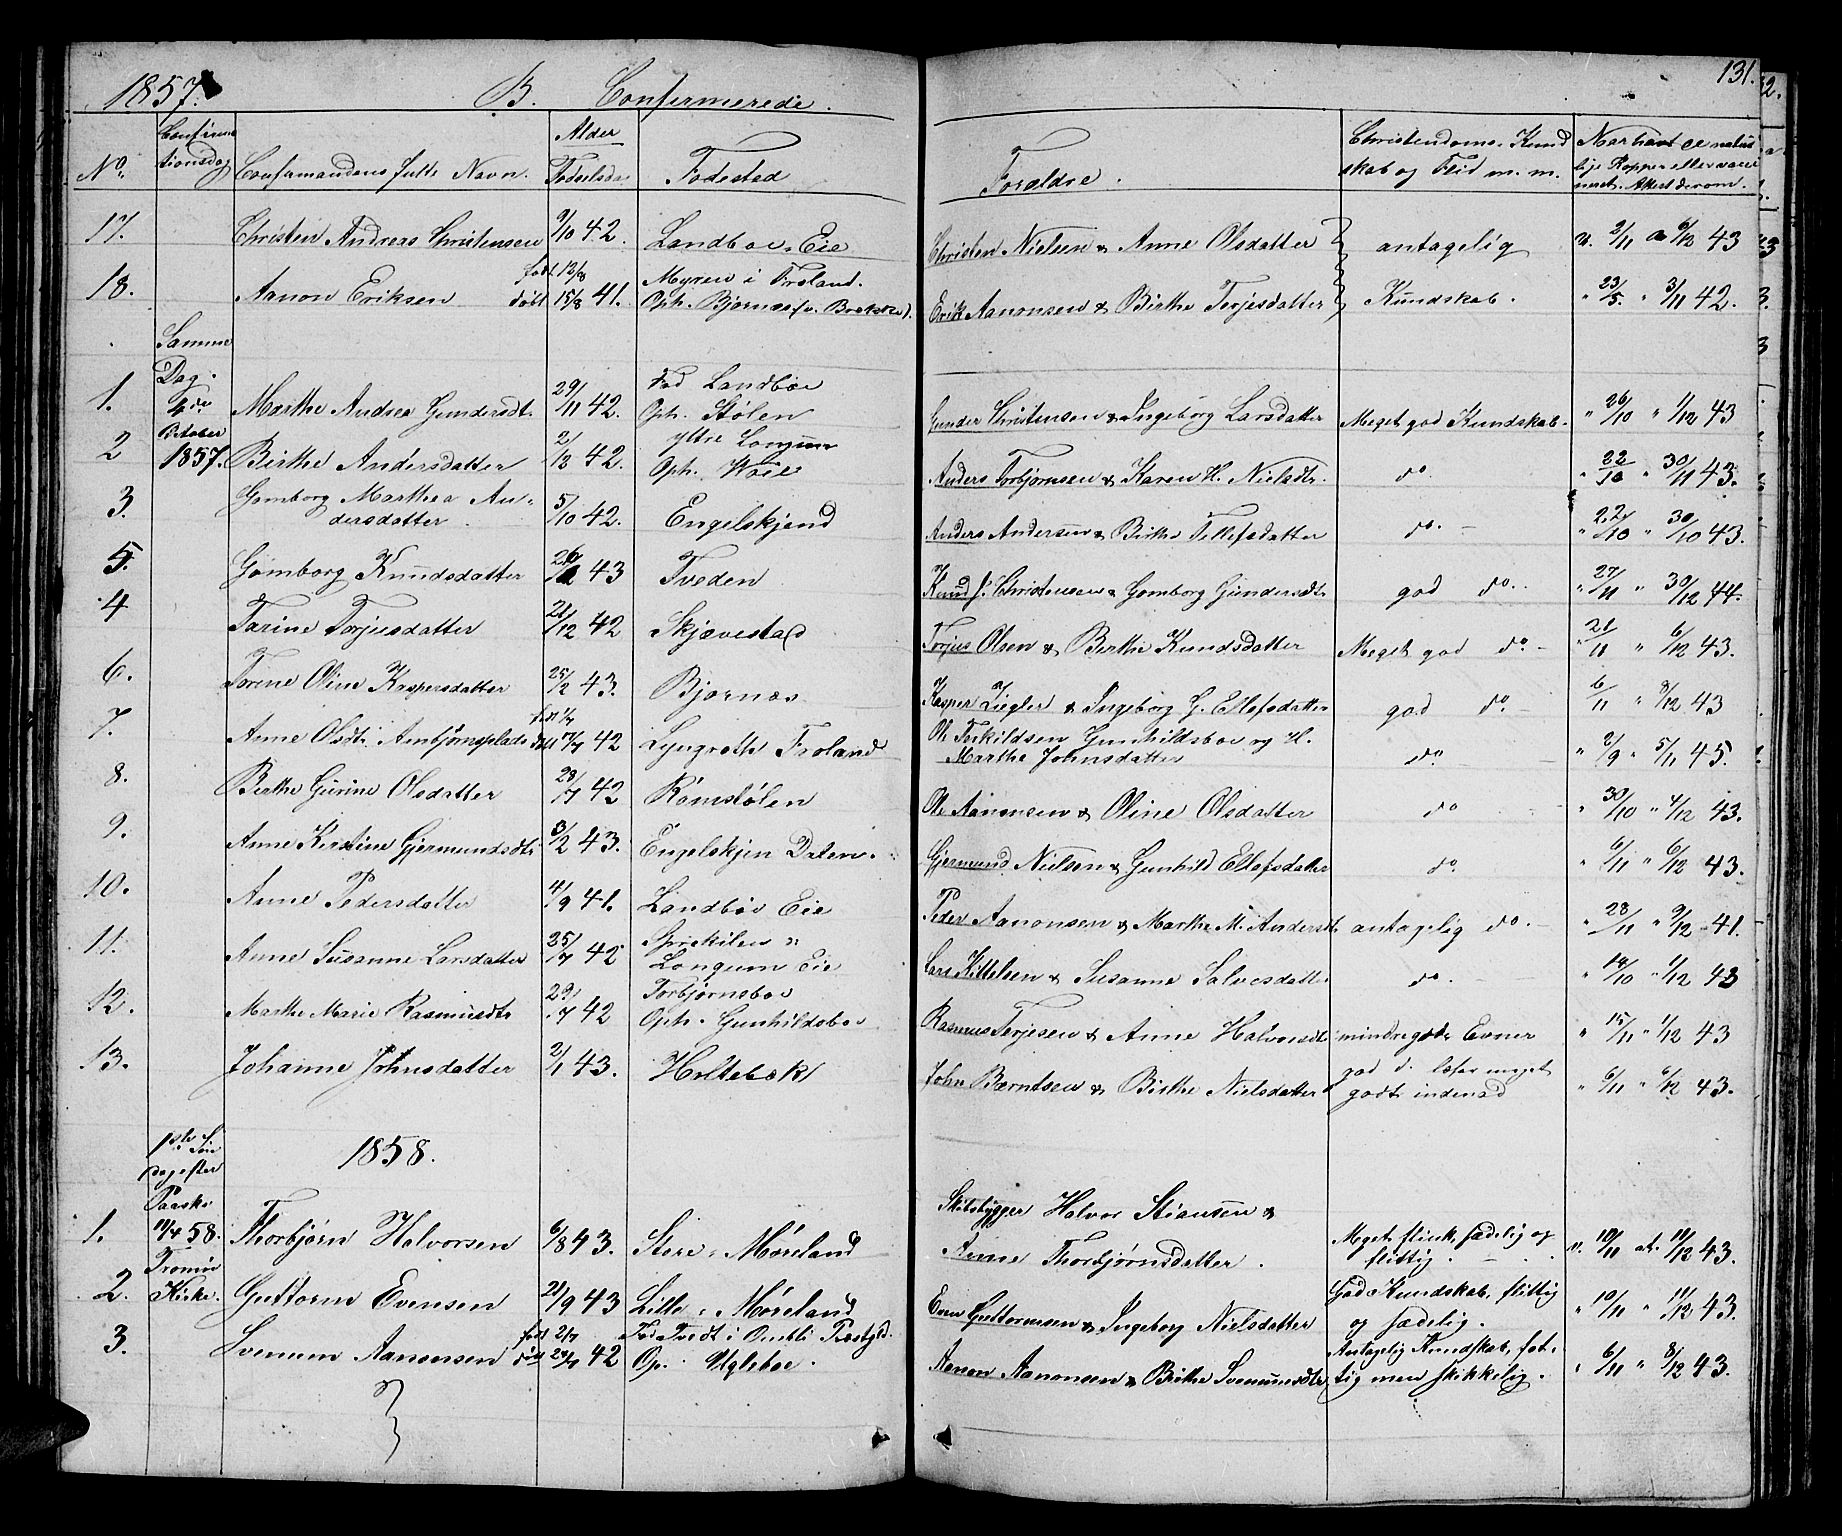 1857. B. Confirmerede. 131.
No. Confirmationsdag Confirmandens fulde Navn. Alder Fødselsda Fødested Forældre. Christendoms-Kundskab og Flid m. m. Naar havt de naturlige Kopper eller vaccineret. Attest derom.
17. Christen Andreas Christensen 9/10 42. Landbøe Eie Christen Nielsen & Anne Olsdatter antagelig v. 2/11 a 6/12 43
18. Aanon Eriksen født 12/8 døbt 15/8 41. Myren i Froland. Oph. Bjørnæs Erik Aanonsen & Birthe Terjesdatter Kundskab. " 23/5. " 3/11 42.
Samme Dag. 4de October 1857.
1. Marthe Andrea Gundersdt. 29/11 42. Fød Landbøe Oph. Stølen Gunder Christensen & Ingeborg Larsdatter Meget god Kundskab. " 26/10 " 1/12 43
2 Birthe Andersdatter 2/12 42. yttre Longum Oph. Woie Anders Torbjørnsen & Karen H. Nielsdtr. do. " 22/10 " 30/11 43.
3. Gomborg Marthea Andersdatter. 5/10 42. Engelskjend Anders Andersen & Birthe Tellefsdatter do. " 22/10 " 30/10 43.
5. Gomborg Knudsdatter 26/ 43 Tveden Knud J. Christensen & Gomborg Gundersdt. god do. " 27/11 " 30/12 44.
4 Tarine Torjusdatter 21/12 42 Skjævestad Torjus Olsen & Berthe Knudsdatter Meget god do. " 21/11 " 6/12 43.
6. Torine Oline Kaspersdatter 25/2 43. Bjørnæs Kasper Ziegler & Ingeborg G. Ellefsdatter god do. 6/11 " 8/12 43
7. Anne Olsdt. Ambjørnsplads 17/7 42 Lyngroth Froland Ole Terkildsen Gunhildsboe og H. Marthe Johnsdatter do. " 2/9 " 5/11 45.
8. Berthe Gurine Olsdatter 28/7 42 Ramstølen Ole Aanonsen & Oline Olsdatter do " 30/10 " 4/12 43.
9. Anne Kirstine Gjermundsdt. 3/2 43. Engelskjen Dalen. Gjermund Nielsen & Gunhild Ellefsdatter do. " 6/11 " 6/12 43.
10. Anne Pedersdatter 4/9 41. Landbøe Eie Peder Aanonsen & Marthe M. Andersdt. antagelig do. " 28/11 " 9/12 41.
11. Anne Susanne Larsdatter 25/7 42 Longum Eie Lars Kittelsen & Susanne Salvesdatter do. " 14/10 " 1/12 43
12. Marthe Marie Rasmusdtr 29/7 42 Torbjørnsboe Oph. Gunhildsboe Rasmus Terjesen & Anne Halvorsdt. mindre gode Evner " 15/11 " 1/12 43
13. Johanne Johnsdatter 2/1 43. Holtebæk John Berntsen & Birthe Nielsdatter god d. læser meget godt indenad " 6/11 " 6/12 43.
1858.
1ste Søndag efter Paaske 11/4 58. Tromø Kirke.
1. Thorbjørn Halvorsen 6/8 43. Store Møreland Skibsbygger Halvor Stiansen & Anne Thorbjørnsdatter. Meget flink, sædelig og flittig. v. 10/11 at. 11/12 43.
2. Guttorm Evensen 21/9 43 Lille Møreland Even Guttormsen & Ingeborg Nielsdatter God Kundskab, flittig og sædelig. " 10/11 " 11/12 43.
3. Svenum Aanonsen født 2/7 døbt 24/7 42 Fød Tvedt i Omblie Præstgjd. Op. Ugleboe. Aanon Aanonsen & Birthe Svenumsdtr. Antagelig Kundskab, men skikkelig. " 6/11 " 8/12 43.